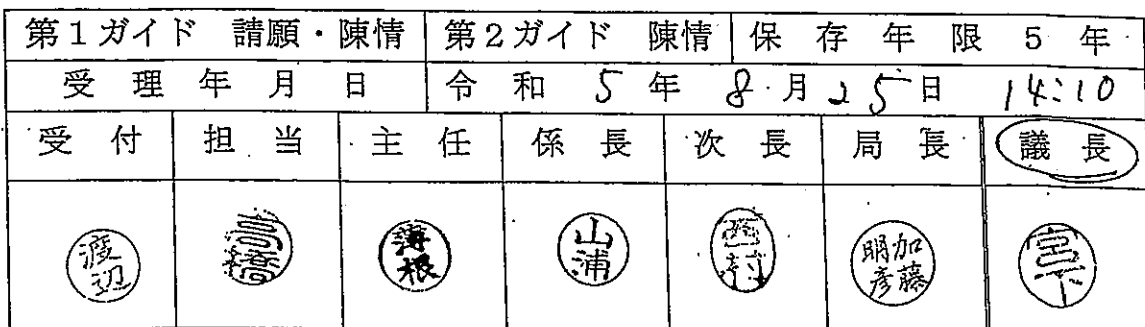 第1ガイド 請願・陳情 第2ガイド 陳情 保存年限 5年
受理年月日 令和 5年 8月25日 14:10
受付 担当 主任 係長 次長 局長 議長
渡辺 高橋 薄根 山浦 西村 加藤明彦 宮下